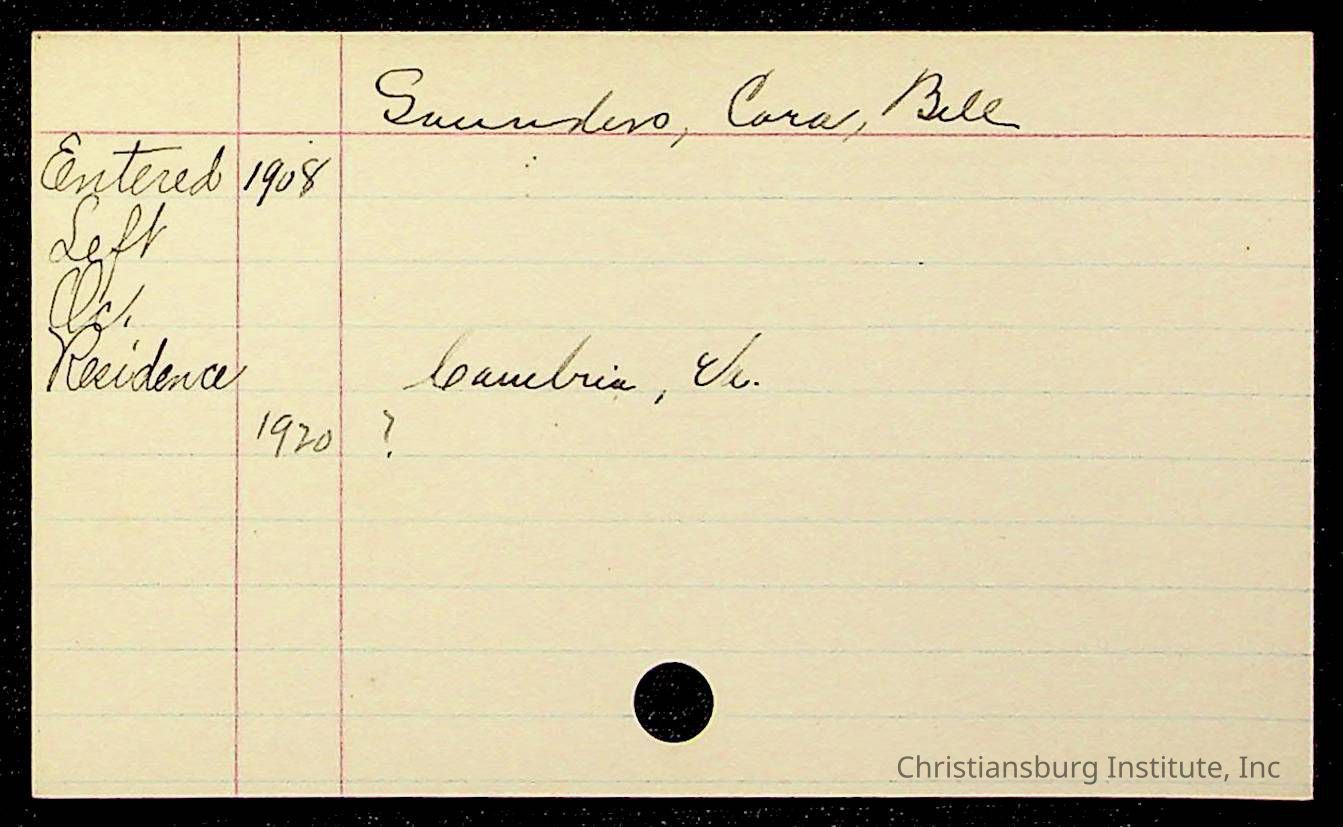 Saunders, Cora, Bell
Entered 1908
Left
Oc.
Residence Cambria, Va.
1920 ?
Christiansburg Institute, Inc